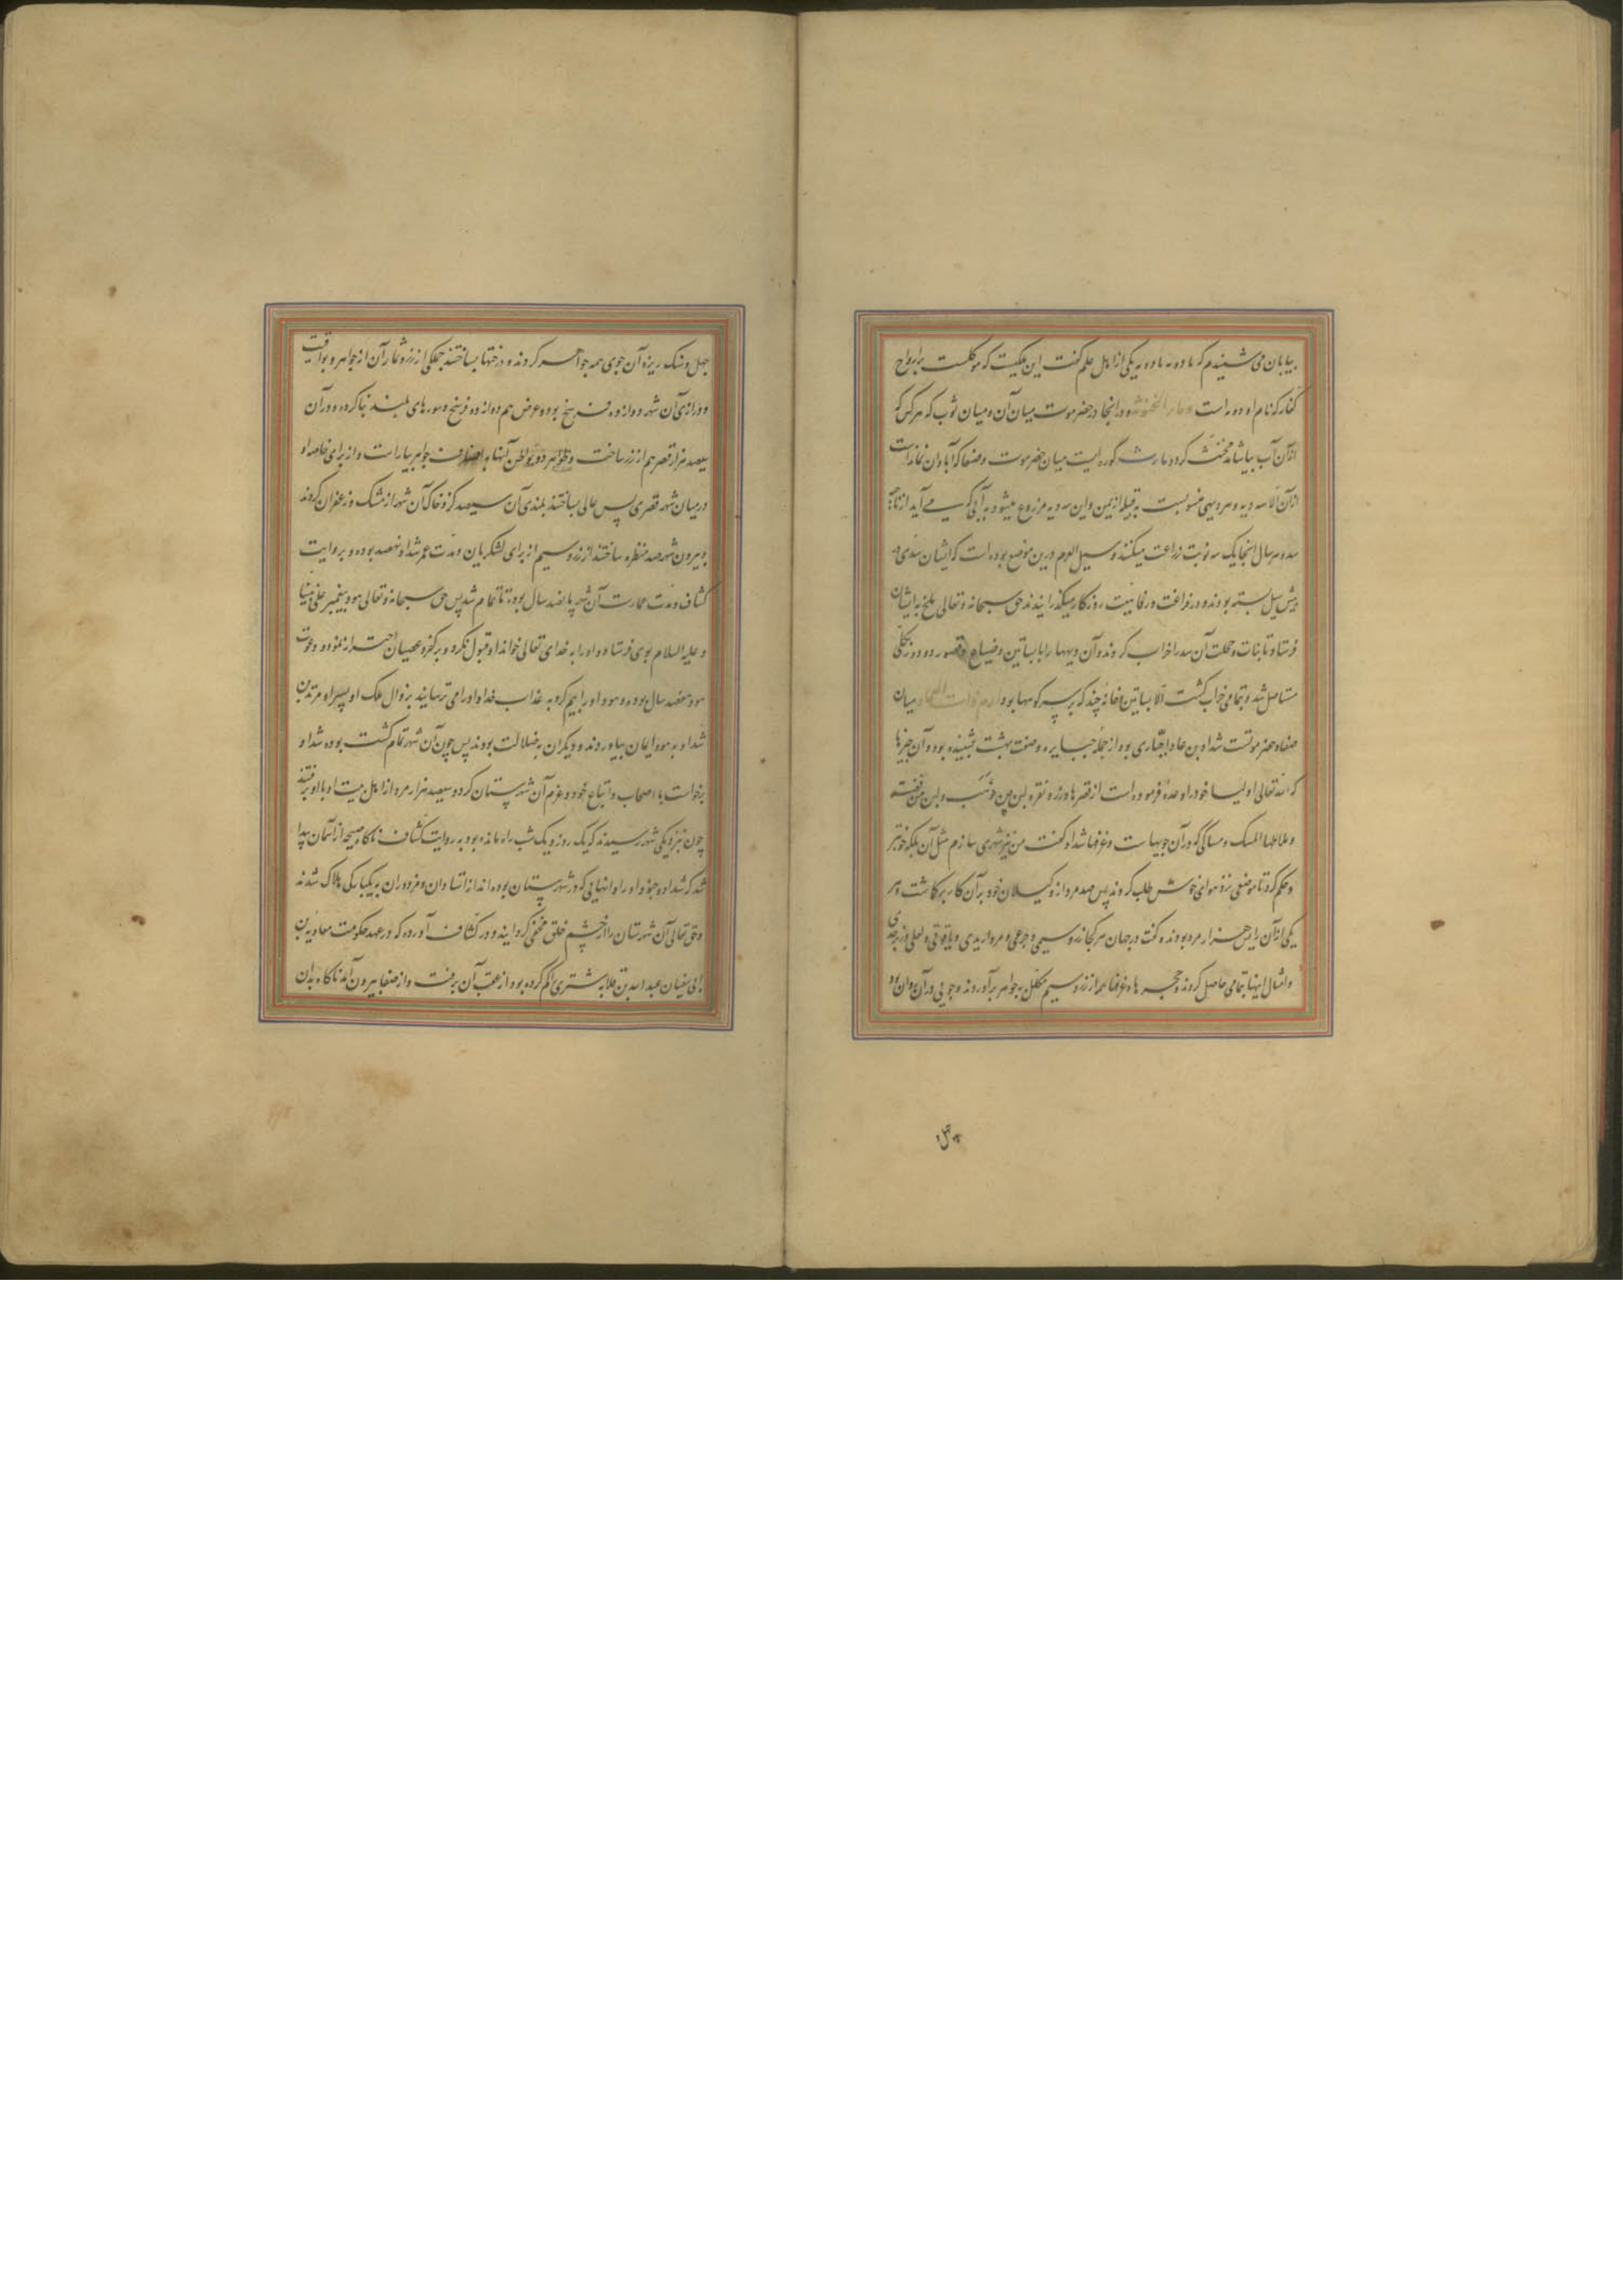 بیابان می شنیدم که یا دومه یا دومه یکی از اهل علم گفت این ملکیست که موکلست بر ارواح
کفار که نام او دومه است و دار انجا در حضرموت میان آن و میان شوب که هر کس که
از آن آب بیاشامد مخنث کردد مارب کوره ایست میان حضرموت و صنعا که آبادان نمانداست
از آن الا سه دیه و هر دیهی منسوبست به قبیله از یمن و این سه دیه مزروع میشود به آبی که می آید از ناحیه
سد و هر سال انجا یک سه نوبت زراعت میکنند و سیل العرم درین موضع بوده است که ایشان سدی در
پیش سیل بسته بودند و در فراغت و رفاهیت روزکار میکذرانیدند حق سبحانه و تعالی ملخ به ایشان
فرستاد تا بنات و محلت آن سد را خراب کردند و آن دیهها را با بساتین و ضیاع و قصور و دور بکلی
مستاصل شد و تمامی خراب کشت الا بساتین و خانه چند که بر سر کوهها بود ارم ذات العماد میان
صنعا و حضرموتست شداد بن عاد جباری بود از جمله جبابره و صفت بهشت شنیده بود و آن چیزها
که الله تعالی اولیا خود را وعده فرموده است از قصرها و زر و نقره لبن من ذهب و لبن من فضة
و ملاطها المسک و مساکنی که در آن جویهاست و غرفها شداد کفت من نیز شهری سازم مثل آن بلکه خوبتر
و حکم کرد تا موضعی نزه هوای خوش طلب کردند پس صد مرد از وکیلان خود بر آن کار برکماشت و هر
یکی از آن رایس هزار مرد بودند و کفت در جهان هر کجا زر و سیمی و جزعی و مرواریدی و یاقوتی و لعلی و زبرجدی
و امثال اینها تمامی حاصل کردند و حجره ها و غرفها هم از زر و سیم مکلل به جواهر برآوردند و جویی در آن روان بود
چهل و سنک ریزه آن جوی همه جواهر کردند و درختها بساختند جملکی از زر و ثمار آن از جواهر و یواقیت
و درازی آن شهر دوازده فرسخ بود و عرض هم دوازده فرسخ و سورهای بلند بنا کرد و در آن
سیصد هزار قصر هم از زر ساخت و ظواهر و بواطن آنها به اصناف جواهر بیاراست و از برای خاصه او
در میان شهر قصری بس عالی بساختند بلندی آن سیصد کز و خاک آن شهر از مشک و زعفران کردند
و بیرون شهر صد منظره ساختند از زر و سیم از برای لشکریان و مدت عمر شداد نهصد بوده و بروایت
کشاف و مدت عمارت آن شهر پانصد سال بوده تا تمام شد پس حق سبحانه و تعالی هود پیغمبر علی نبینا
و علیه السلام بوی فرستاد و او را به خدای تعالی خواند او قبول نکرد و بر کفر و عصیان احتراز ننمود و دعوت
هود هفتصد سال بود و هود او را بیم کرد به عذاب خدا و او را می ترسانید بزوال ملک او پسر او مرثد بن
شداد به هود ایمان بیاوردند و دیکران به ضلالت بودند پس چون آن شهر تمام کشت بوده شداد
بخواست با اصحاب و اتباع خود و عزم آن شهرستان کرد و سیصد هزار مرد از اهل بیت او با او برفتند
چون بنزدیکی شهر رسیدند که یک روز و یک شب راه مانده بود به روایت کشاف ناکاه صیحه از آسمان پیدا
شد که شداد و جنود او را و انهایی که در شهرستان بوده اند از استادان و مزدوران به یکبارکی هلاک شدند
و حق تعالی آن شهرستان را از چشم خلق مخفی کردانید و در کشاف آورده که در عهد حکومت معاویه بن
ابی سفیان عبد الله بن قلابه شتری را کم کرده بود از عقب آن برفت و از صنعا بیرون آمد ناکاه بدان